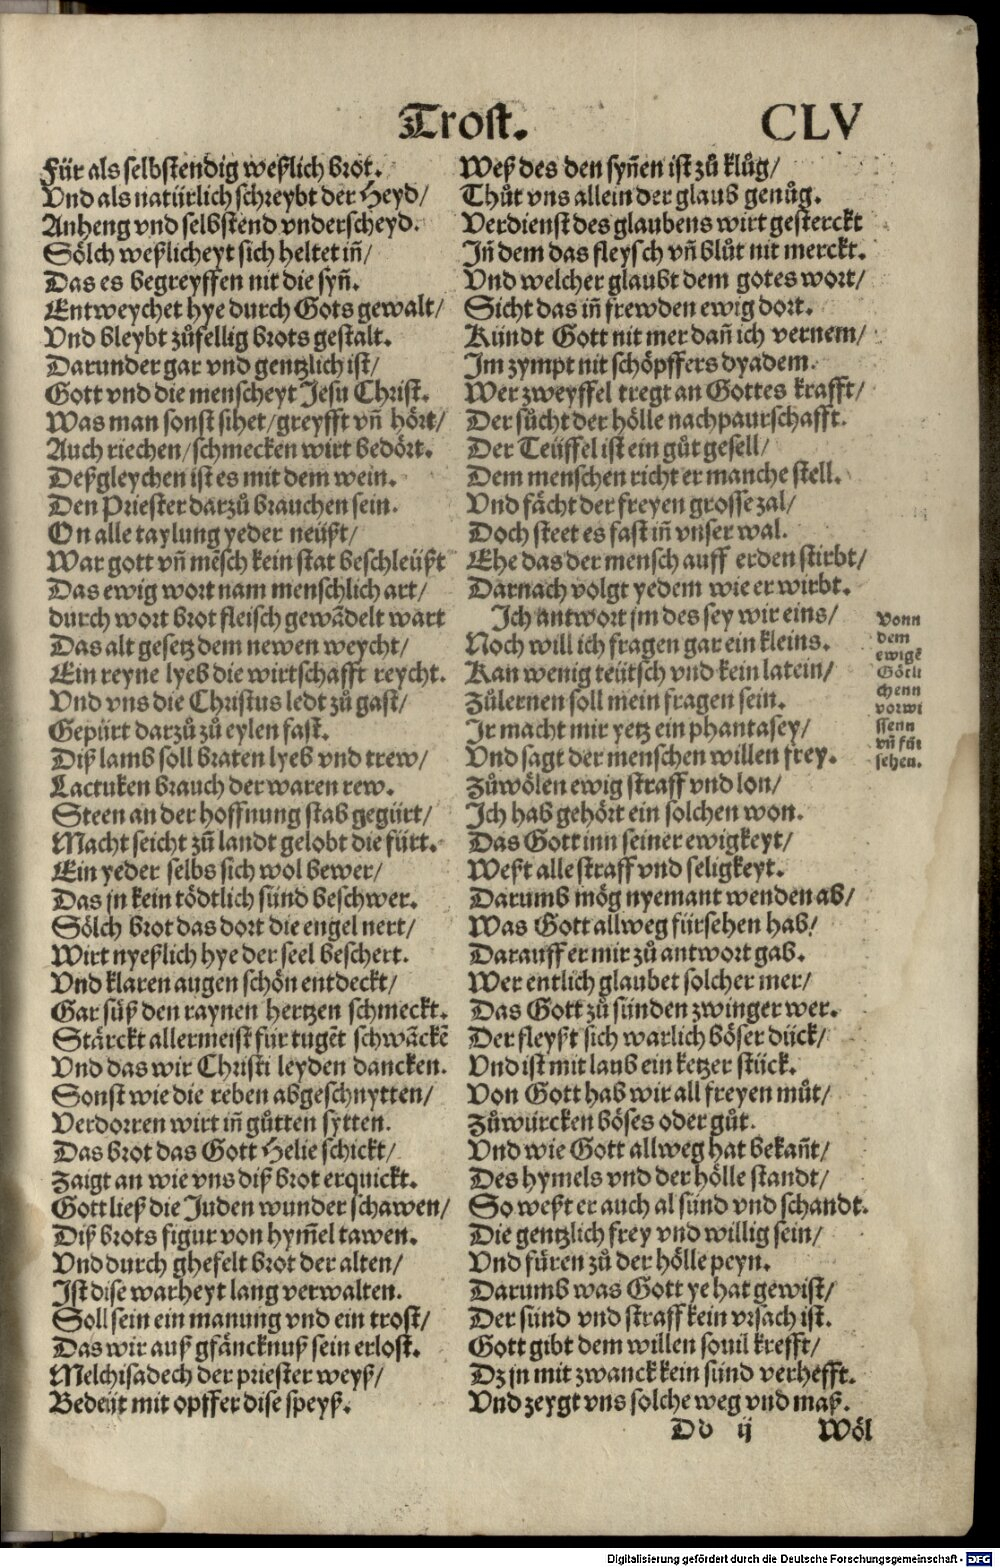 Trost. CLV
Für als selbstendig weßlich brot.
Vnd als natürlich schreybt der Heyd/
Anheng vnd selbstend vnderscheyd.
Sölch weßlicheyt sich heltet iñ/
Das es begreyffen nit die syñ.
Entweychet hye durch Gots gewalt/
Vnd bleybt zůfellig brots gestalt.
Darunder gar vnd gentzlich ist/
Gott vnd die menscheyt Jesu Christ.
Was man sonst sihet/greyfft vñ hört/
Auch riechen/schmecken wirt bedört.
Deßgleychen ist es mit dem wein.
Den Priester darzů brauchen sein.
On alle taylung yeder neüßt/
War gott vñ mēsch kein stat beschleüßt
Das ewig wort nam menschlich art/
durch wort brot fleisch gewādelt wart
Das alt gesetz dem newen weycht/
Ein reyne lyeb die wirtschafft reycht.
Vnd vns die Christus ledt zů gast/
Gepürt darzů zů eylen fast.
Diß lamb soll braten lyeb vnd trew/
Lactuken brauch der waren rew.
Steen an der hoffnung stab gegürt/
Macht seicht zů landt gelobt die fürt.
Ein yeder selbs sich wol bewer/
Das jn kein tödtlich sünd beschwer.
Sölch brot das dort die engel nert/
Wirt nyeßlich hye der seel beschert.
Vnd klaren augen schön entdeckt/
Gar süß den raynen hertzen schmeckt.
Stärckt allermeist für tugēt schwāckē
Vnd das wir Christi leyden dancken.
Sonst wie die reben abgeschnytten/
Verdorren wirt iñ gůtten sytten.
Das brot das Gott Helie schickt/
Zaigt an wie vns diß brot erquickt.
Gott ließ die Juden wunder schawen/
Diß brots figur von hym̃el tawen.
Vnd durch ghefelt brot der alten/
Ist dise warheyt lang verwalten.
Soll sein ein manung vnd ein trost/
Das wir auß gfäncknuß sein erlost.
Melchisadech der priester weyß/
Bedeüt mit opffer dise speyß.
Weß des den syñen ist zů klůg/
Thůt vns allein der glaub genůg.
Verdienst des glaubens wirt gesterckt
Jñ dem das fleysch vñ blůt nit merckt.
Vnd welcher glaubt dem gotes wort/
Sicht das iñ frewden ewig dort.
Kündt Gott nit mer dañ ich vernem/
Im zympt nit schöpffers dyadem.
Wer zweyffel tregt an Gottes krafft/
Der sücht der hölle nachpaurschafft.
Der Teüffel ist ein gůt gesell/
Dem menschen richt er manche stell.
Vnd fächt der freyen grosse zal/
Doch steet es fast iñ vnser wal.
Ehe das der mensch auff erden stirbt/
Darnach volgt yedem wie er wirbt.
Ich antwort jm des sey wir eins/
Noch will ich fragen gar ein kleins.
Kan wenig teütsch vnd kein latein/
Zůlernen soll mein fragen sein.
Ir macht mir yetz ein phantasey/
Vnd sagt der menschen willen frey.
Zůwölen ewig straff vnd lon/
Ich hab gehört ein solchen won.
Das Gott inn seiner ewigkeyt/
Weßt alle straff vnd seligkeyt.
Darumb mög nyemant wenden ab/
Was Gott allweg fürsehen hab/
Darauff er mir zů antwort gab.
Wer entlich glaubet solcher mer/
Das Gott zů sünden zwinger wer.
Der fleyßt sich warlich böser dück/
Vnd ist mit laub ein ketzer stück.
Von Gott hab wir all freyen můt/
Zůwürcken böses oder gůt.
Vnd wie Gott allweg hat bekañt/
Des hymels vnd der hölle standt/
So weßt er auch al sünd vnd schandt.
Die gentzlich frey vnd willig sein/
Vnd füren zů der hölle peyn.
Darumb was Gott ye hat gewist/
Der sünd vnd straff kein vrsach ist.
Gott gibt dem willen souil krefft/
Dz jn mit zwanck kein sünd verhefft.
Vnd zeygt vns solche weg vnd maß.
Vonn
dem
ewigē
Götli
chenn
vorwi
ssenn
vñ für
sehen.
Dd ij Wöl
Digitalisierung gefördert durch die Deutsche Forschungsgemeinschaft - DFG